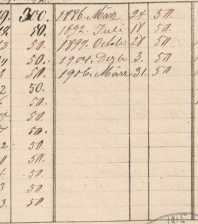 300. 1886. März 24. 50.
50. 1892. Juli 18. 50
50. 1897. Octobr 28. 50
50. 1901. Dezbr 3. 50.
50. 1906. März 31. 50
50.
50.
50.
50.
50.
50.
50.
50.
50.